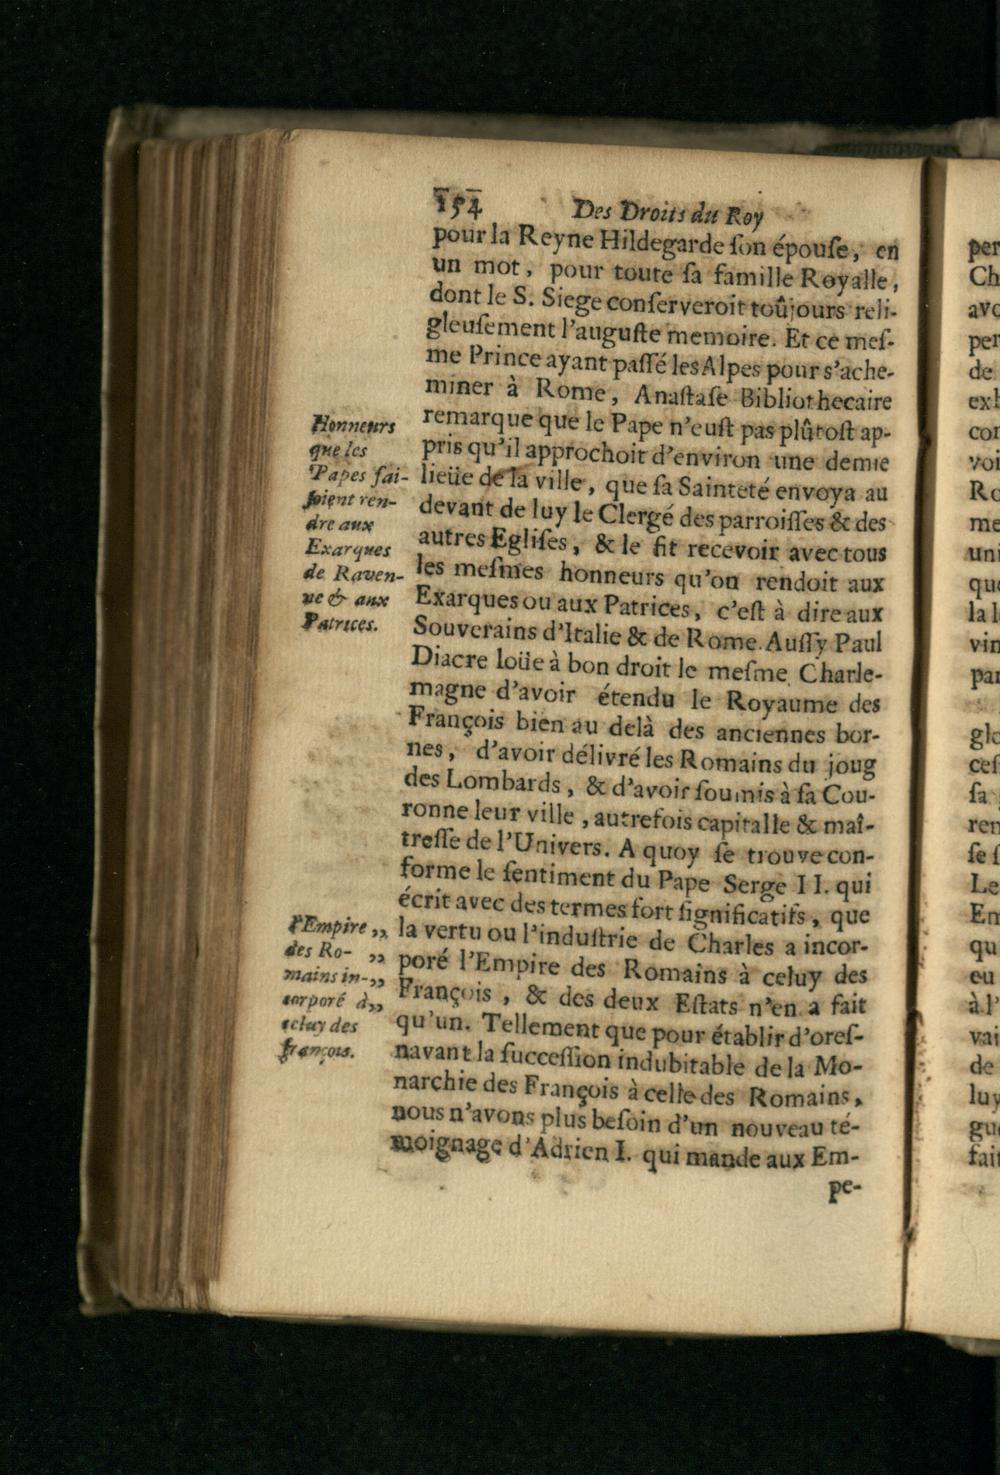 154 Des Droits du Roy
pour la Reyne Hildegarde ſon épouſe, en
un mot, pour toute ſa famille Royalle,
dont le S. Siege conſerveroit toûjours reli-
gieuſement l'auguſte memoire. Et ce meſ-
me Prince ayant paſſé les Alpes pour s'ache-
miner à Rome, Anaſtaſe Bibliothecaire
remarque que le Pape n'euſt pas plûtoſt ap-
pris qu'il approchoit d'environ une demie
lieüe de la ville, que ſa Sainteté envoya au
devant de luy le Clergé des parroiſſes & des
autres Egliſes, & le fit recevoir avec tous
les meſmes honneurs qu'on rendoit aux
Exarques ou aux Patrices, c'eſt à dire aux
Souverains d'Italie & de Rome. Auſſy Paul
Diacre loüe à bon droit le meſme Charle-
magne d'avoir étendu le Royaume des
François bien au delà des anciennes bor-
nes, d'avoir délivré les Romains du joug
des Lombards, & d'avoir ſoumis à ſa Cou-
ronne leur ville, autrefois capitalle & maî-
treſſe de l'Univers. A quoy ſe trouve con-
forme le ſentiment du Pape Serge II. qui
écrit avec des termes fort ſignificatifs, que
„ la vertu ou l'induſtrie de Charles a incor-
„ poré l'Empire des Romains à celuy des
„ François, & des deux Eſtats n'en a fait
„ qu'un. Tellement que pour établir d'oreſ-
navant la ſucceſſion indubitable de la Mo-
narchie des François à celle des Romains,
nous n'avons plus beſoin d'un nouveau té-
moignage d'Adrien I. qui mande aux Em-
pe-
Honneurs
que les
Papes fai-
ſoient ren-
dre aux
Exarques
de Raven-
ne & aux
Patrices.
l'Empire
des Ro-
mains in-
corporé à
celuy des
françois.
per
Ch
avo
per
de
exh
con
voi
Ro
me
uni
que
la l
vin
par
glo
ceſ
ſa
ren
ſe ſ
Le
Em
qu
eu
à l'
vai
de
luy
gue
fait